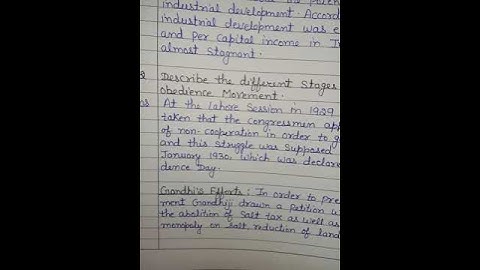 industrial development. Accord
industrial development was e
and per Capital income in I
almost Stagnant.
Describe the different Stages
obedience Movement.
At the Lahore Session in 1929
taken that the congressmen app
of non-cooperation in order to g
and this struggle was supposed
January 1930, which was declare
dence Day.
Gandhi's Efforts: In order to pre
ment Gandhiji drawn a petition w
the abolition of Salt tax as well as
monopoly on salt, reduction of land